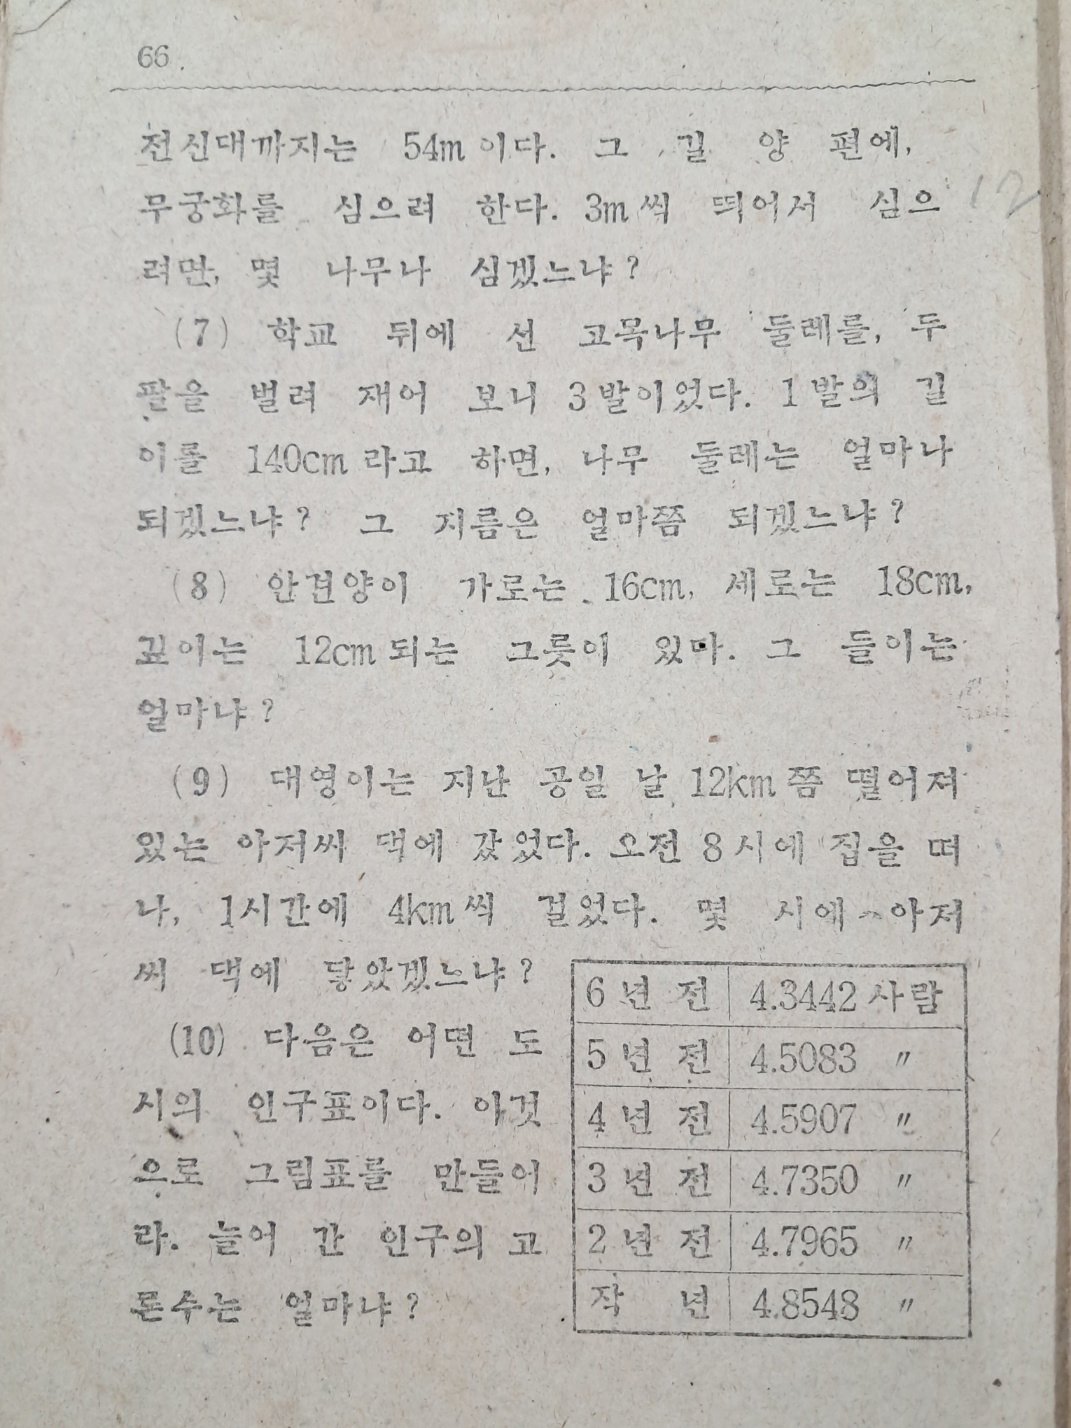 66
전신대까지는 54m이다. 그 길 양 편에,
무궁화를 심으려 한다. 3m씩 띄어서 심으
려면, 몇 나무나 심겠느냐?
12
(7) 학교 뒤에 선 고목나무 둘레를, 두
팔을 벌려 재어 보니 3발이었다. 1발의 길
이를 140cm라고 하면, 나무 둘레는 얼마나
되겠느냐? 그 지름은 얼마쯤 되겠느냐?
(8) 안견양이 가로는 16cm, 세로는 18cm,
깊이는 12cm되는 그릇이 있다. 그 들이는
얼마냐?
(9) 대영이는 지난 공일 날 12km쯤 떨어져
있는 아저씨 댁에 갔었다. 오전 8시에 집을 떠
나, 1시간에 4km씩 걸었다. 몇 시에 아저
씨 댁에 닿았겠느냐?
(10) 다음은 어떤 도
시의 인구표이다. 이것
으로 그림표를 만들어
라. 늘어 간 인구의 고
른수는 얼마냐?
6년 전 4.3442사람
5년 전 4.5083 〃
4년 전 4.5907 〃
3년 전 4.7350 〃
2년 전 4.7965 〃
작 년 4.8548 〃